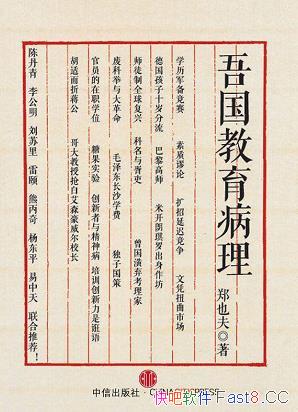 吾国教育病理
郑也夫◎著
学历军备竞赛 素质谬论 扩招延迟竞争 文凭扭曲市场
德国孩子十岁分流 巴黎高师 米开朗琪罗出身作坊
师徒制全球复兴 科名与胥吏 曾国潢弃考理家
废科举与大革命 毛泽东长沙学费 独子国策
官员的在职学位 糖果实验 创新者与精神病 培训创新力是诳语
胡适面折蒋公 哥大教授抢白艾森豪威尔校长
陈丹青 李公明 刘苏里 雷颐 熊丙奇 杨东平 易中天 联合推荐！
中信出版社·CHINA CITIC PRESS
快吧软件 Fast8.CC